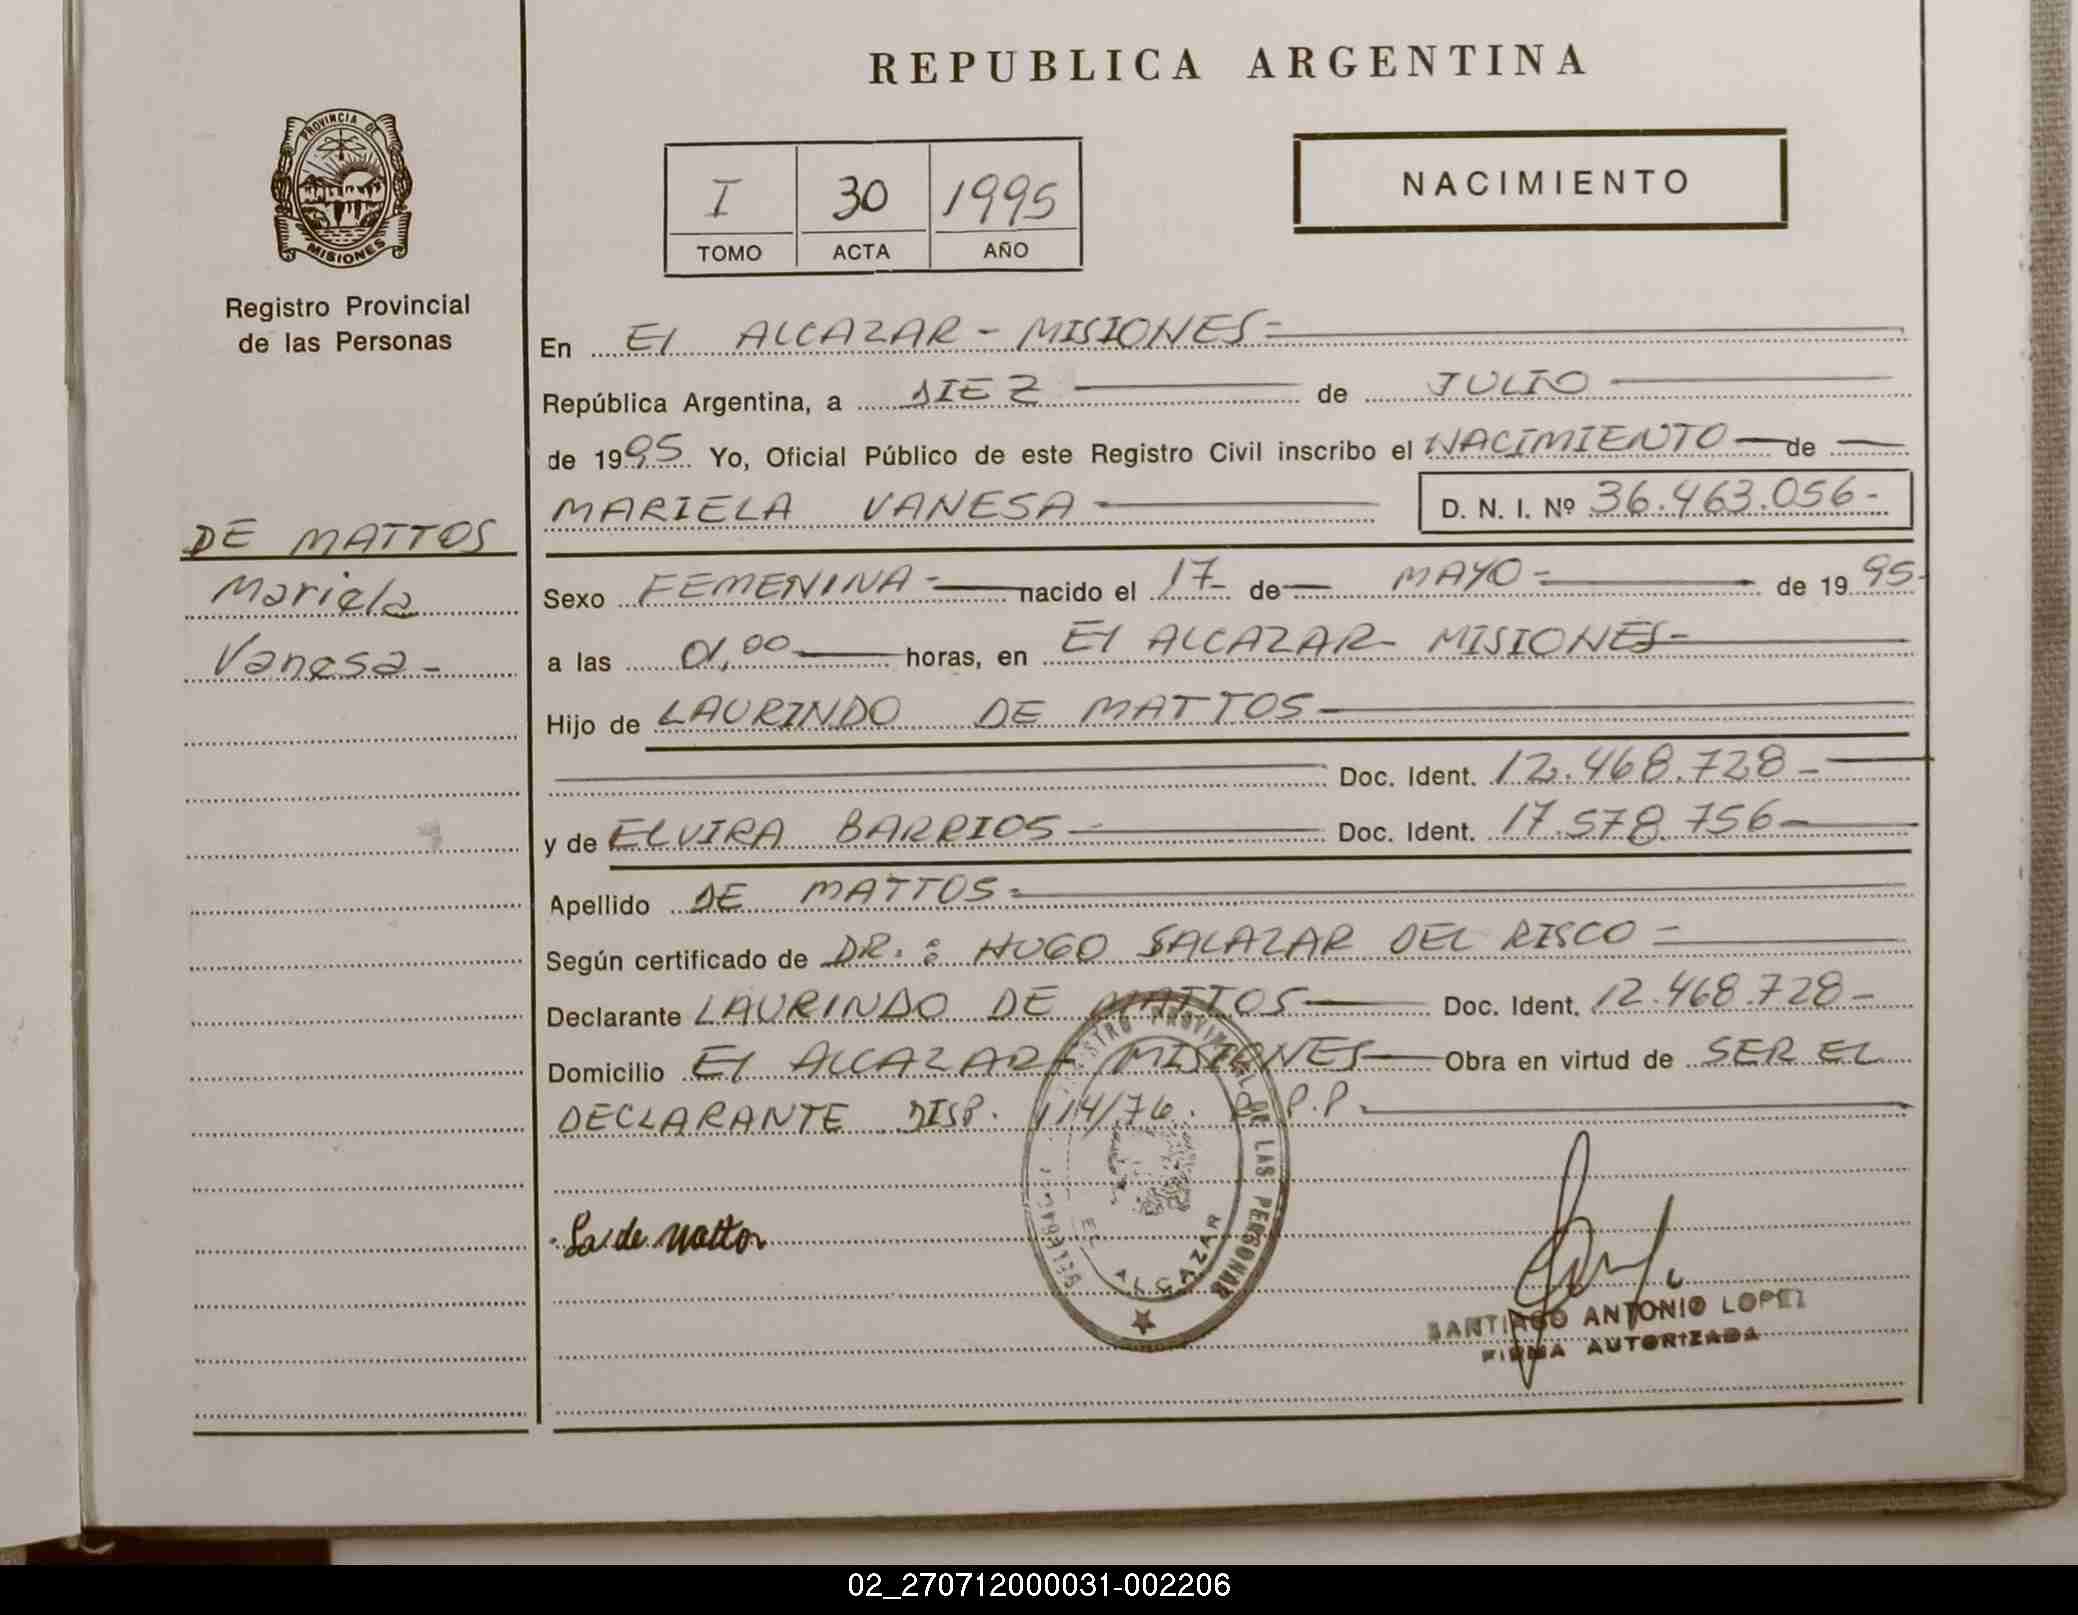 REPUBLICA ARGENTINA
PROVINCIA DE
MISIONES
Registro Provincial
de las Personas
I 30 1995
TOMO ACTA AÑO
NACIMIENTO
En El ALCAZAR - MISIONES -
República Argentina, a DIEZ de JULIO
de 1995 Yo, Oficial Público de este Registro Civil inscribo el NACIMIENTO de
MARIELA VANESA D. N. I. Nº 36.463.056-
DE MATTOS
Mariela
Vanesa -
Sexo FEMENINA - nacido el 17 de MAYO - de 1995-
a las 01,00 horas, en El ALCAZAR - MISIONES -
Hijo de LAURINDO DE MATTOS -
Doc. Ident. 12.468.728 -
y de ELVIRA BARRIOS - Doc. Ident. 17.578.756 -
Apellido DE MATTOS -
Según certificado de DR.: HUGO SALAZAR DEL RISCO -
Declarante LAURINDO DE MATTOS Doc. Ident. 12.468.728 -
Domicilio El ALCAZAR - MISIONES Obra en virtud de SER EL
DECLARANTE DISP. 114/76. R.P.P.
REGISTRO PROVINCIAL DE LAS PERSONAS
EL
ALCAZAR
La de Mattos
SANTIAGO ANTONIO LOPEZ
FIRMA AUTORIZADA
02_270712000031-002206